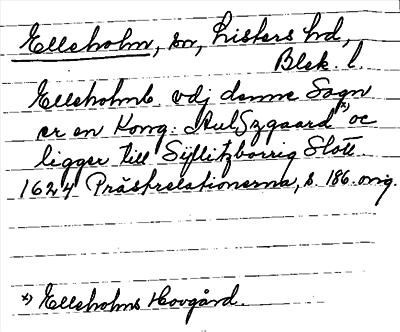 Elleholm, sn, Listers hd,
Blek. l.
Elleholmb. vdj denne Sogn
er en Kong. AulSzgaard x) oc
ligger till Syllitzborrig Slott.
1624 Prästrelationerna, s. 186. orig.
x) Elleholms Hovgård.